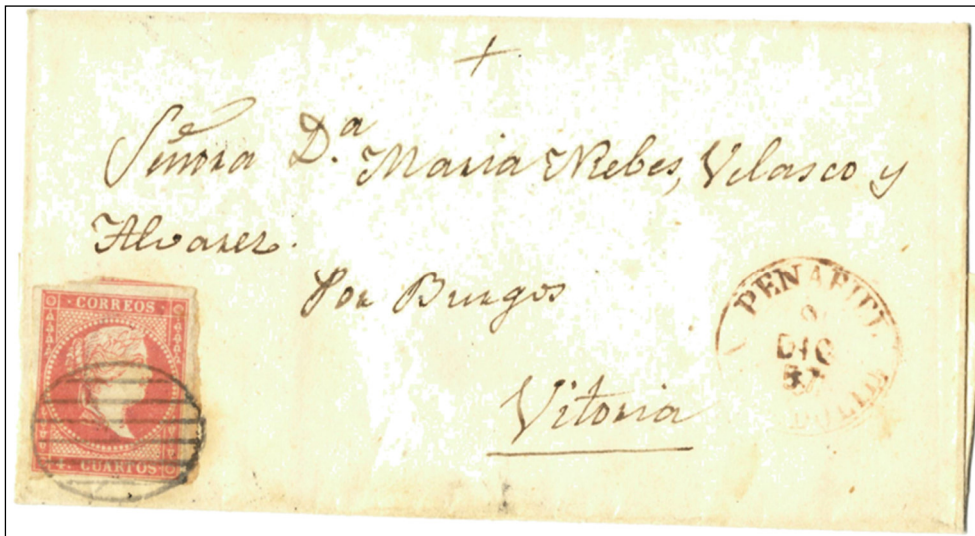 +
Señora D.ª Maria Niebes, Velasco y
Alvarez.
Por Burgos
Vitoria
CORREOS
4. CUARTOS
PEÑAFIEL
DIC